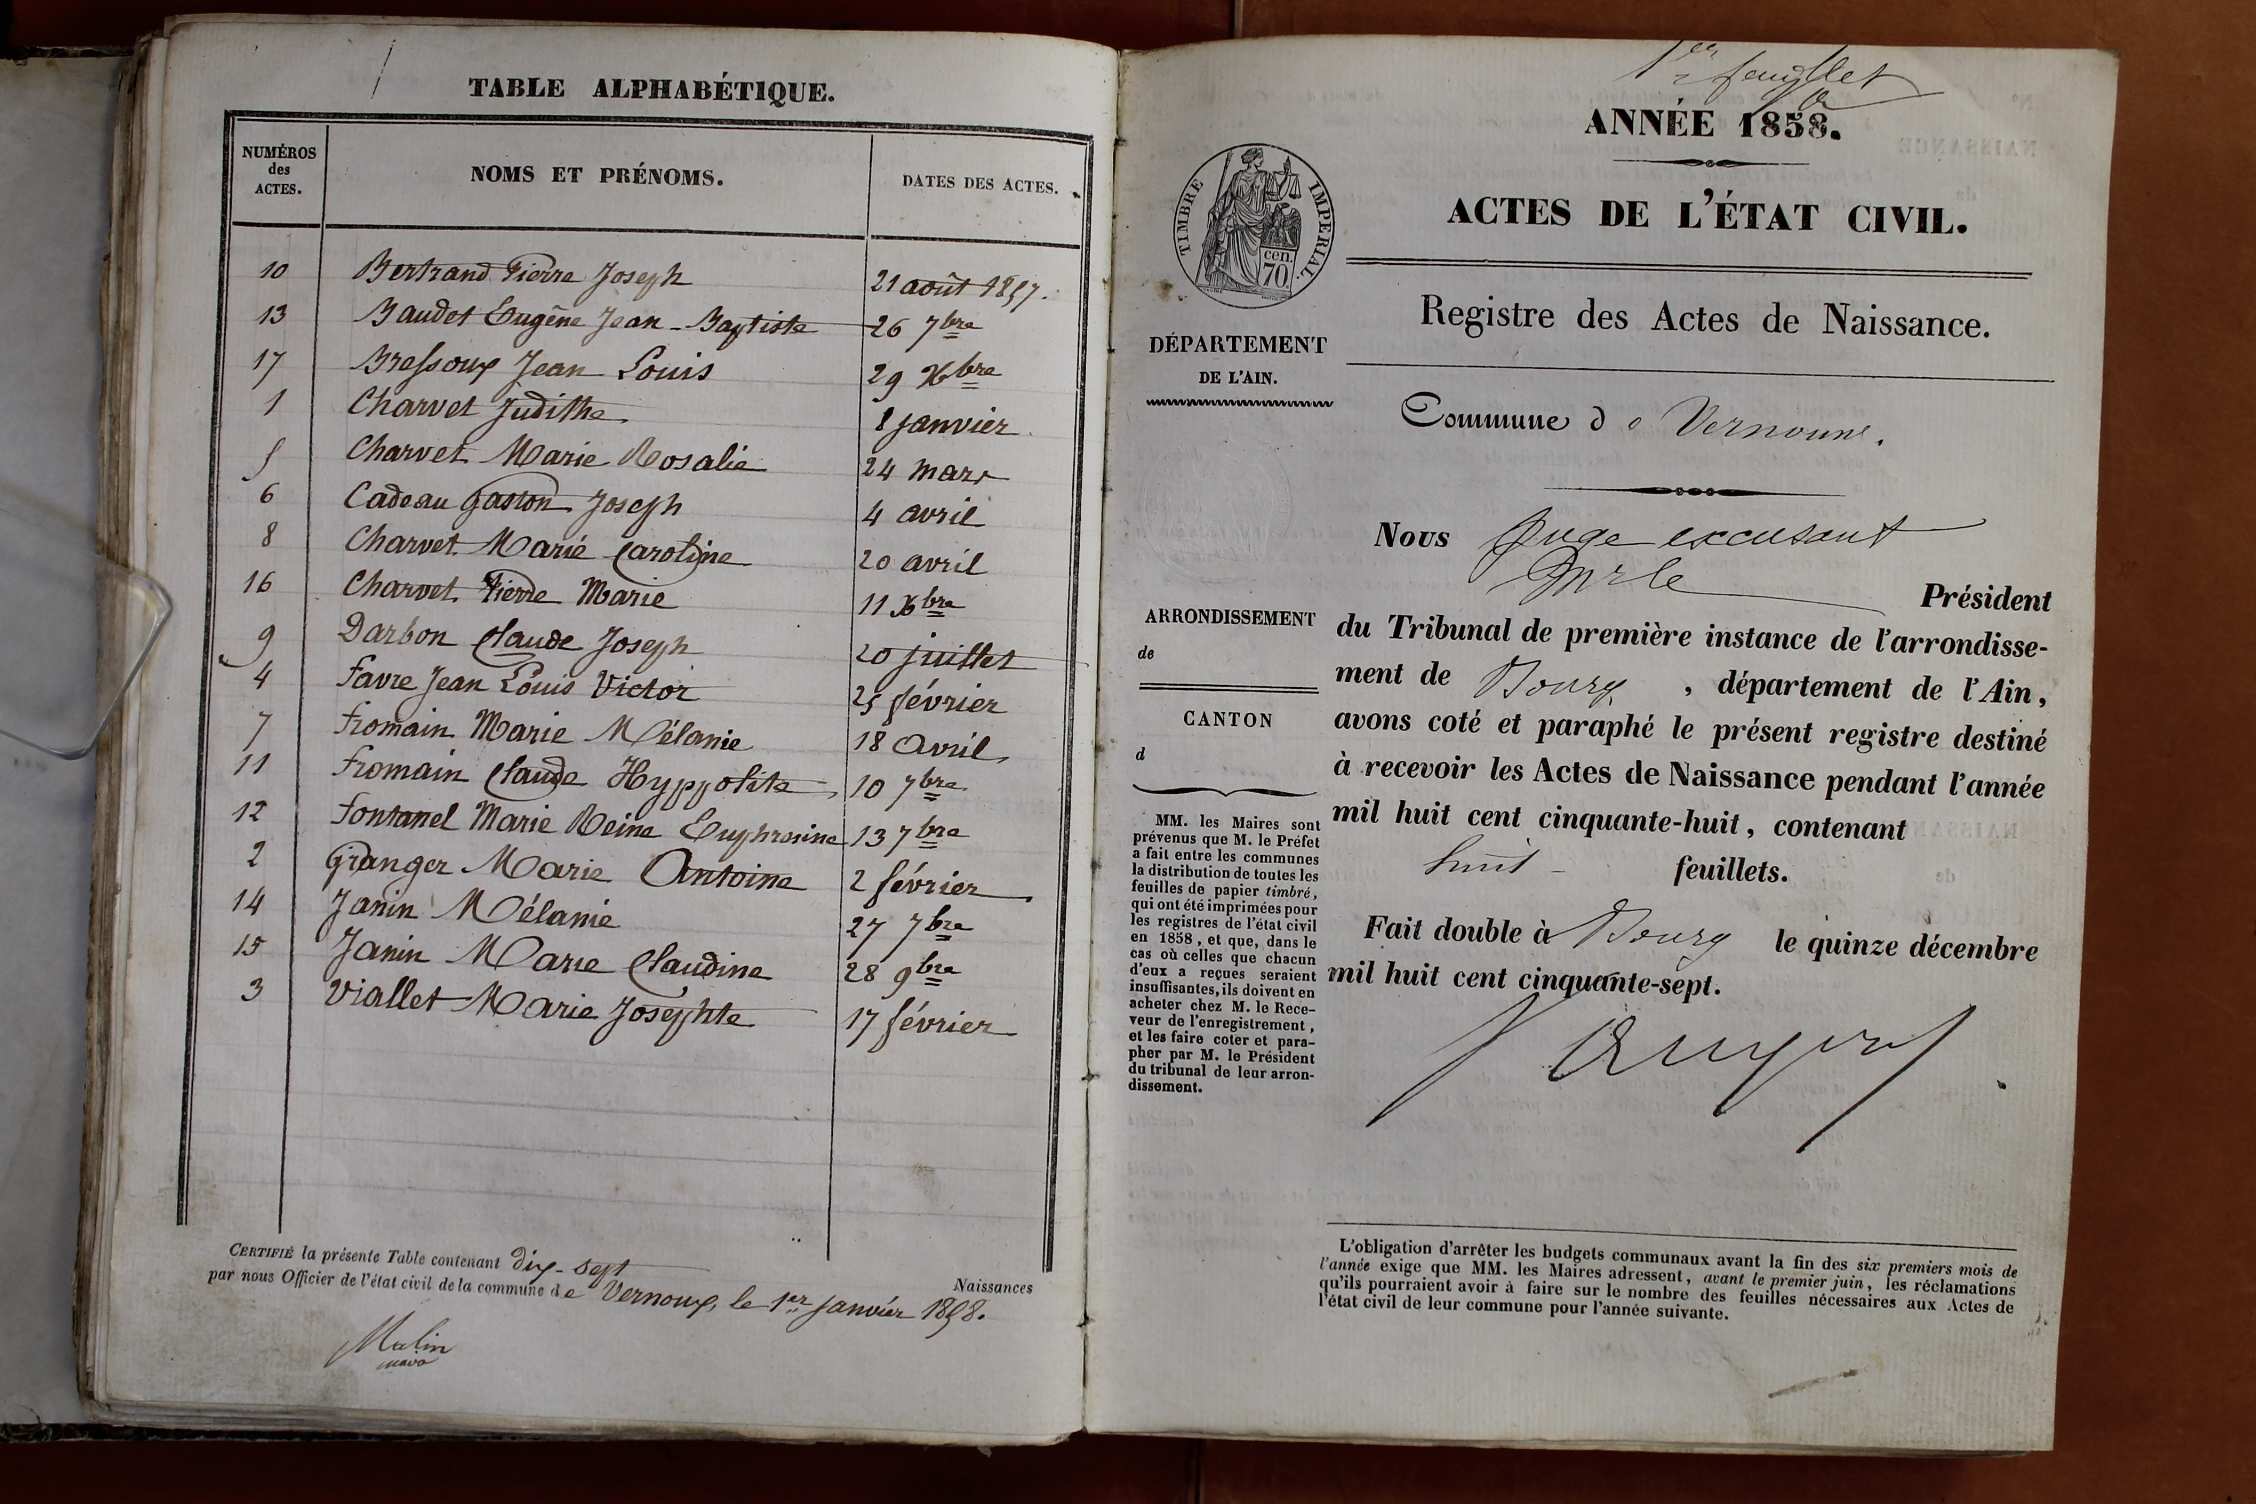 TABLE ALPHABÉTIQUE.
NUMÉROS
des
ACTES.
NOMS ET PRÉNOMS.
DATES DES ACTES.
10 Bertrand Pierre Joseph 21 août 1857.
13 Baudet Eugène Jean-Baptiste 26 7bre
17 Bressoux Jean Louis 29 Xbre
1 Charvet Judithe 8 janvier
5 Charvet Marie Rosalie 24 mars
6 Cadeau Gaston Joseph 4 avril
8 Charvet Marie Caroline 20 avril
16 Charvet Pierre Marie 11 Xbre
9 Darbon Claude Joseph 20 juillet
4 Favre Jean Louis Victor 25 février
7 Fromain Marie Mélanie 18 avril
11 Fromain Claude Hyppolite 10 7bre
12 Fontanel Marie Reine Euphrosine 13 7bre
2 Granger Marie Antoine 2 février
14 Janin Mélanie 27 7bre
15 Janin Marie Claudine 28 9bre
3 Viallet Marie Josephte 17 février
CERTIFIÉ la présente Table contenant dix-sept Naissances
par nous Officier de l'état civil de la commune de Vernoux, le 1er janvier 1858.
1er feuillet
ANNÉE 1858.
TIMBRE IMPÉRIAL.
cen.
70
ACTES DE L'ÉTAT CIVIL.
Registre des Actes de Naissance.
DÉPARTEMENT
DE L'AIN.
Commune de Vernoux.
Nous Juge excusant
Mr le Président
ARRONDISSEMENT
de
CANTON
d
du Tribunal de première instance de l'arrondisse-
ment de Bourg, département de l'Ain,
avons coté et paraphé le présent registre destiné
à recevoir les Actes de Naissance pendant l'année
mil huit cent cinquante-huit, contenant
huit feuillets.
Fait double à Bourg le quinze décembre
mil huit cent cinquante-sept.
MM. les Maires sont
prévenus que M. le Préfet
a fait entre les communes
la distribution de toutes les
feuilles de papier timbré,
qui ont été imprimées pour
les registres de l'état civil
en 1858, et que, dans le
cas où celles que chacun
d'eux a reçues seraient
insuffisantes, ils doivent en
acheter chez M. le Rece-
veur de l'enregistrement,
et les faire coter et para-
pher par M. le Président
du tribunal de leur arron-
dissement.
L'obligation d'arrêter les budgets communaux avant la fin des six premiers mois de
l'année exige que MM. les Maires adressent, avant le premier juin, les réclamations
qu'ils pourraient avoir à faire sur le nombre des feuilles nécessaires aux Actes de
l'état civil de leur commune pour l'année suivante.